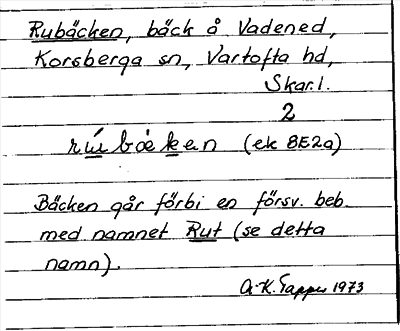 Rubäcken, bäck å Vadened,
Korsberga sn, Vartofta hd,
Skar.l.
2
(ek 8E2a)
Bäcken går förbi en försv. beb.
med namnet Rut (se detta
namn).
A-K. Tapper 1973